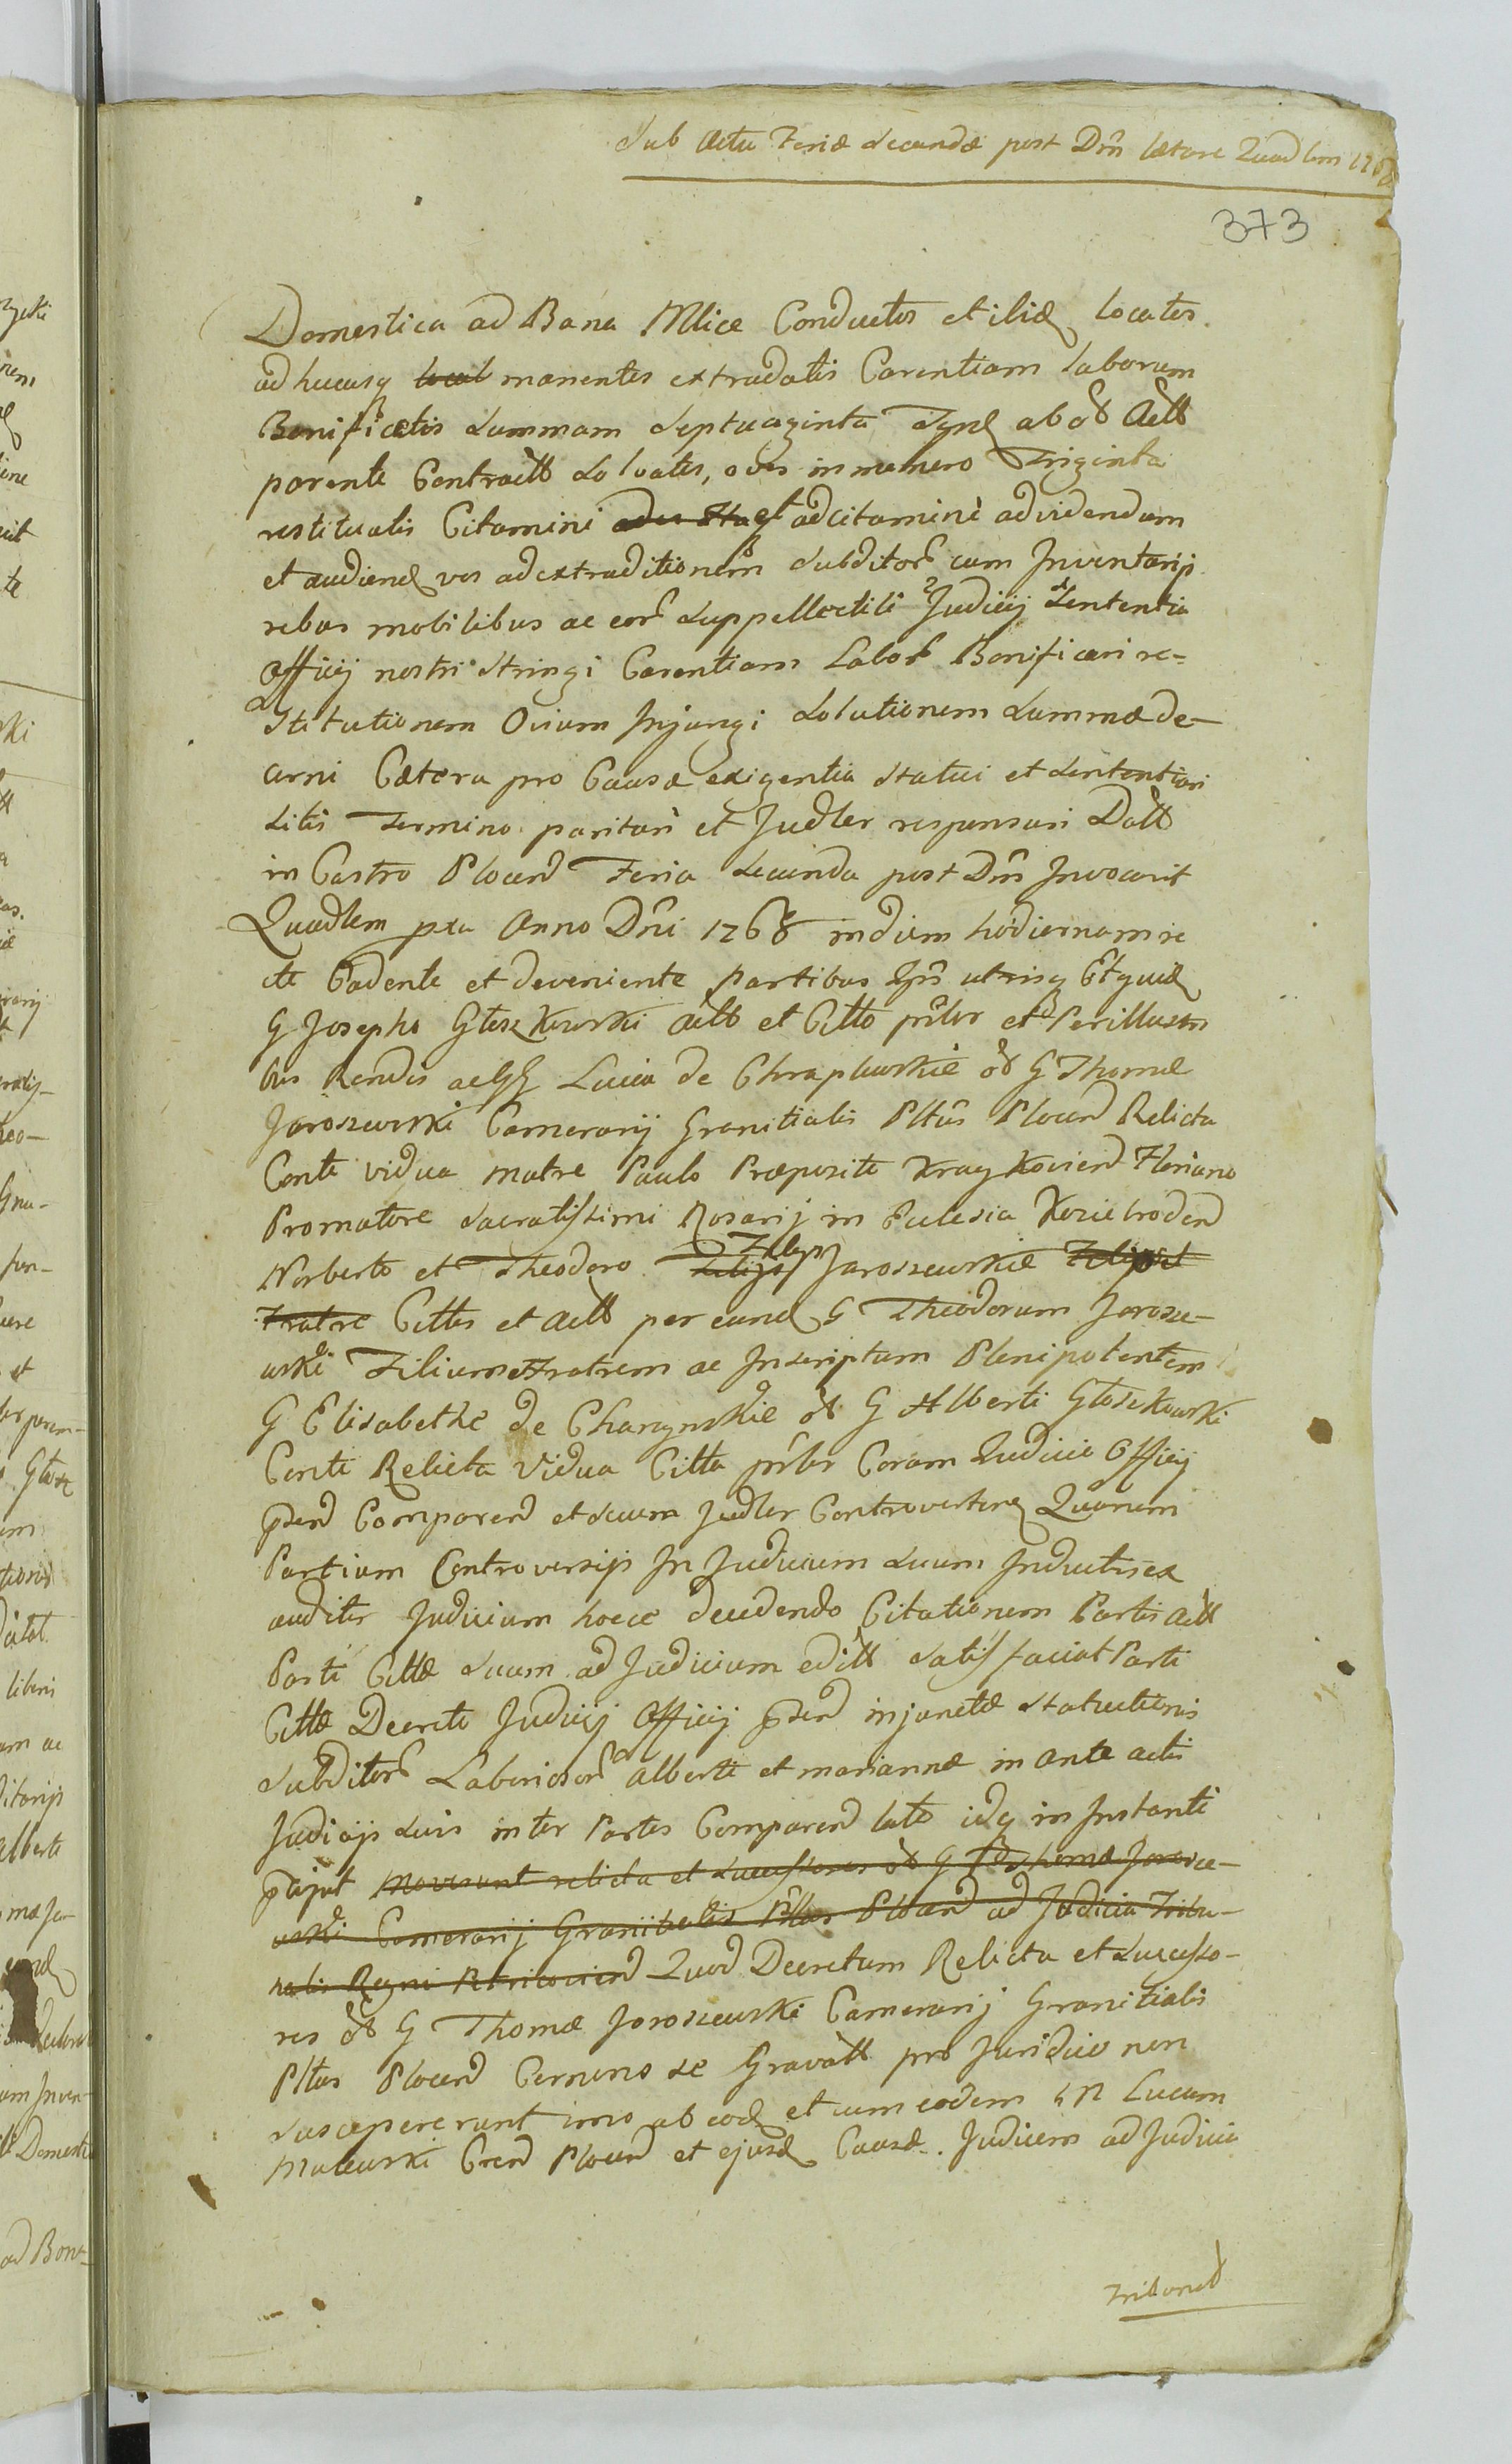 Sub Actu Feriæ Secundæ post Dnī lætare Quadlem 1768
373
Domestica ad Bona Mlice Conductos et ibid locatos
ad hucusq local manentes extradatis Carentiam laborum
Bonificetis Summam Septuaginta ab Actt
parente Contractt Solvatis, oves in numero Triginta
restituatis Citamini adcitamini ad videndum
et audiend vos ad extraditionem Subditor cum Inventarijs
rebus mobilibus ac eor Suppellectili Judicij Sententia
Officij nostri Stringi Carentiam Labor Bonificari re-
Stitutionem Ovium Injungi Solutionem Summæ de-
cerni Cætera pro Causæ exigentia Statui et Sententiari
Sitis Termino parituri et Judler responsuri Datt
in Castro Plocen Feria Secunda post Dnī Invocavit
Quadlem pxa Anno Dni 1768 in diem hodiernam ri
te Cadente et deveniente Partibus Ipis utrisq
G Josepho Głoszkowski Actt et Citto prlr et Perillustri
bus Rendis ac Lucia de Chrapkowskie G Thomæ
Jaroszewski Camerarij Granitialis Pltus Plocen Relicta
Conte vidua matre Paulo Præposito Kraykovien Floriano
Promotore Sacratissimi Rosarij in Eclesia Koziebroden
Norberto et Theodoro Filijs Filijs Jaroszewskie Filijs et
Fratre Cittis et Actt per eund G Theodorum Jarosze-
wski Filium et Fratrem ac Inscriptum Plenipotentem
G Elisabethe de Charzynskie G Alberti Głoszkowski
Conte Relicta Vidua Citta prlr Coram Judicio Officij
pten Comparen et Secum Judler Controverten Quarum
Partium Controversijs In Judicium Suum Inductis ex
auditis Judicium hocce decidendo Citationem Partis Actt
Parti Cittæ Suum ad Judicium editt Satisfaciat Parti
Cittæ Decreto Judicij Officij pten injunctæ Statuitionis
Subditor Laboriosor Alberti et mariannæ in ante actis
Judicijs Suis inter Partes Comparen lato idq in Instanti
Moverunt relicta et Successores G Thomæ Jarosze-
wski Camerarij Granitialis Pltus Plocen ad Judicia Tribu-
nalis Regni Petricovien Quod Decretum Relicta et Successo-
res G Thomæ Jaroszewski Camerarij Granitialis
Pltus Plocen Cerneno se Gravatt pro Juridico non
Susceperunt imo ab eod et cum eodem Lucam
Malewski Plocen et ejusd Causæ Judicem ad Judicia